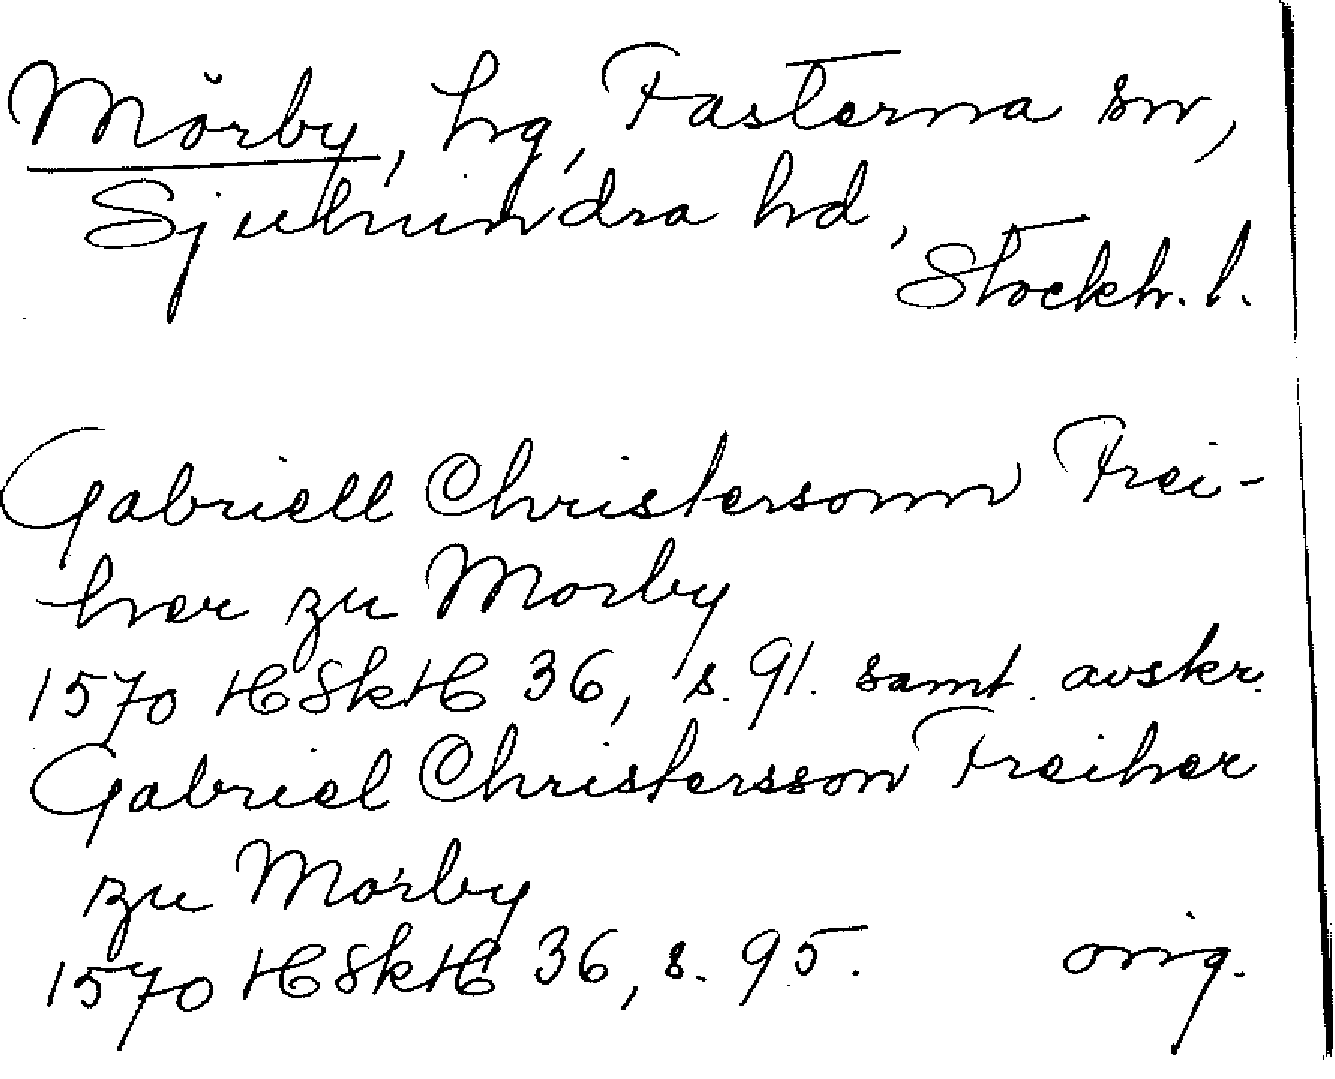 Mörby, hg, Fasterna sn,
Sjuhundra hd,
Stockh. l.
Gabriell Christersonn Frei-
herr zu Morby
1570 HSkH 36, s. 91. samt. avskr.
Gabriel Christersson Freiher
zu Mörby
1570 HSkH 36, s. 95. orig.